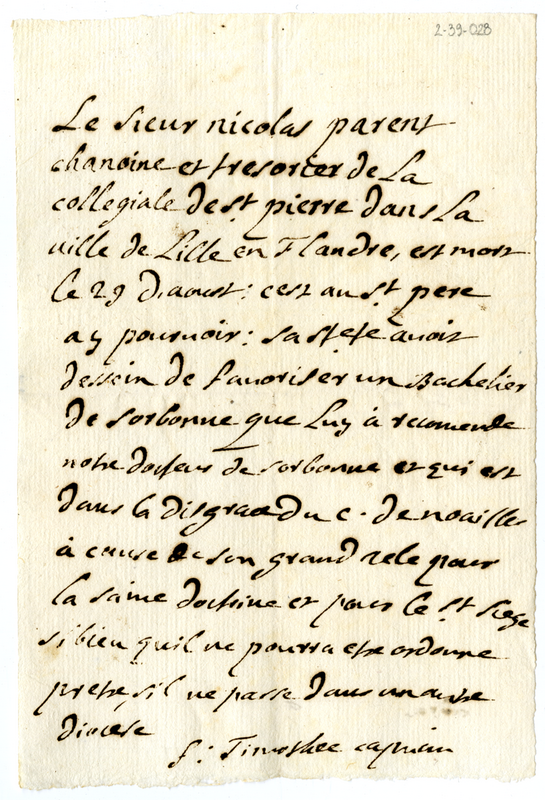 2-39-028
Le sieur nicolas parent
chanoine et tresorier de La
collegiale de st pierre dans La
ville de Lille en Flandre, est mort
le 29 d'aoust: cest au st pere
a y pourvoir: sa stete avoit
dessein de favoriser un Bachelier
de sorbonne que Luy à recomende
notre docteur de sorbonne et qui est
dans la disgrace du c. de noailles
à cause de son grand zele pour
la saine doctrine et pour le st siege
si bien quil ne pourra etre ordonne
pretre, sil ne passe dans un autre
diocese
f: Timothee capucin